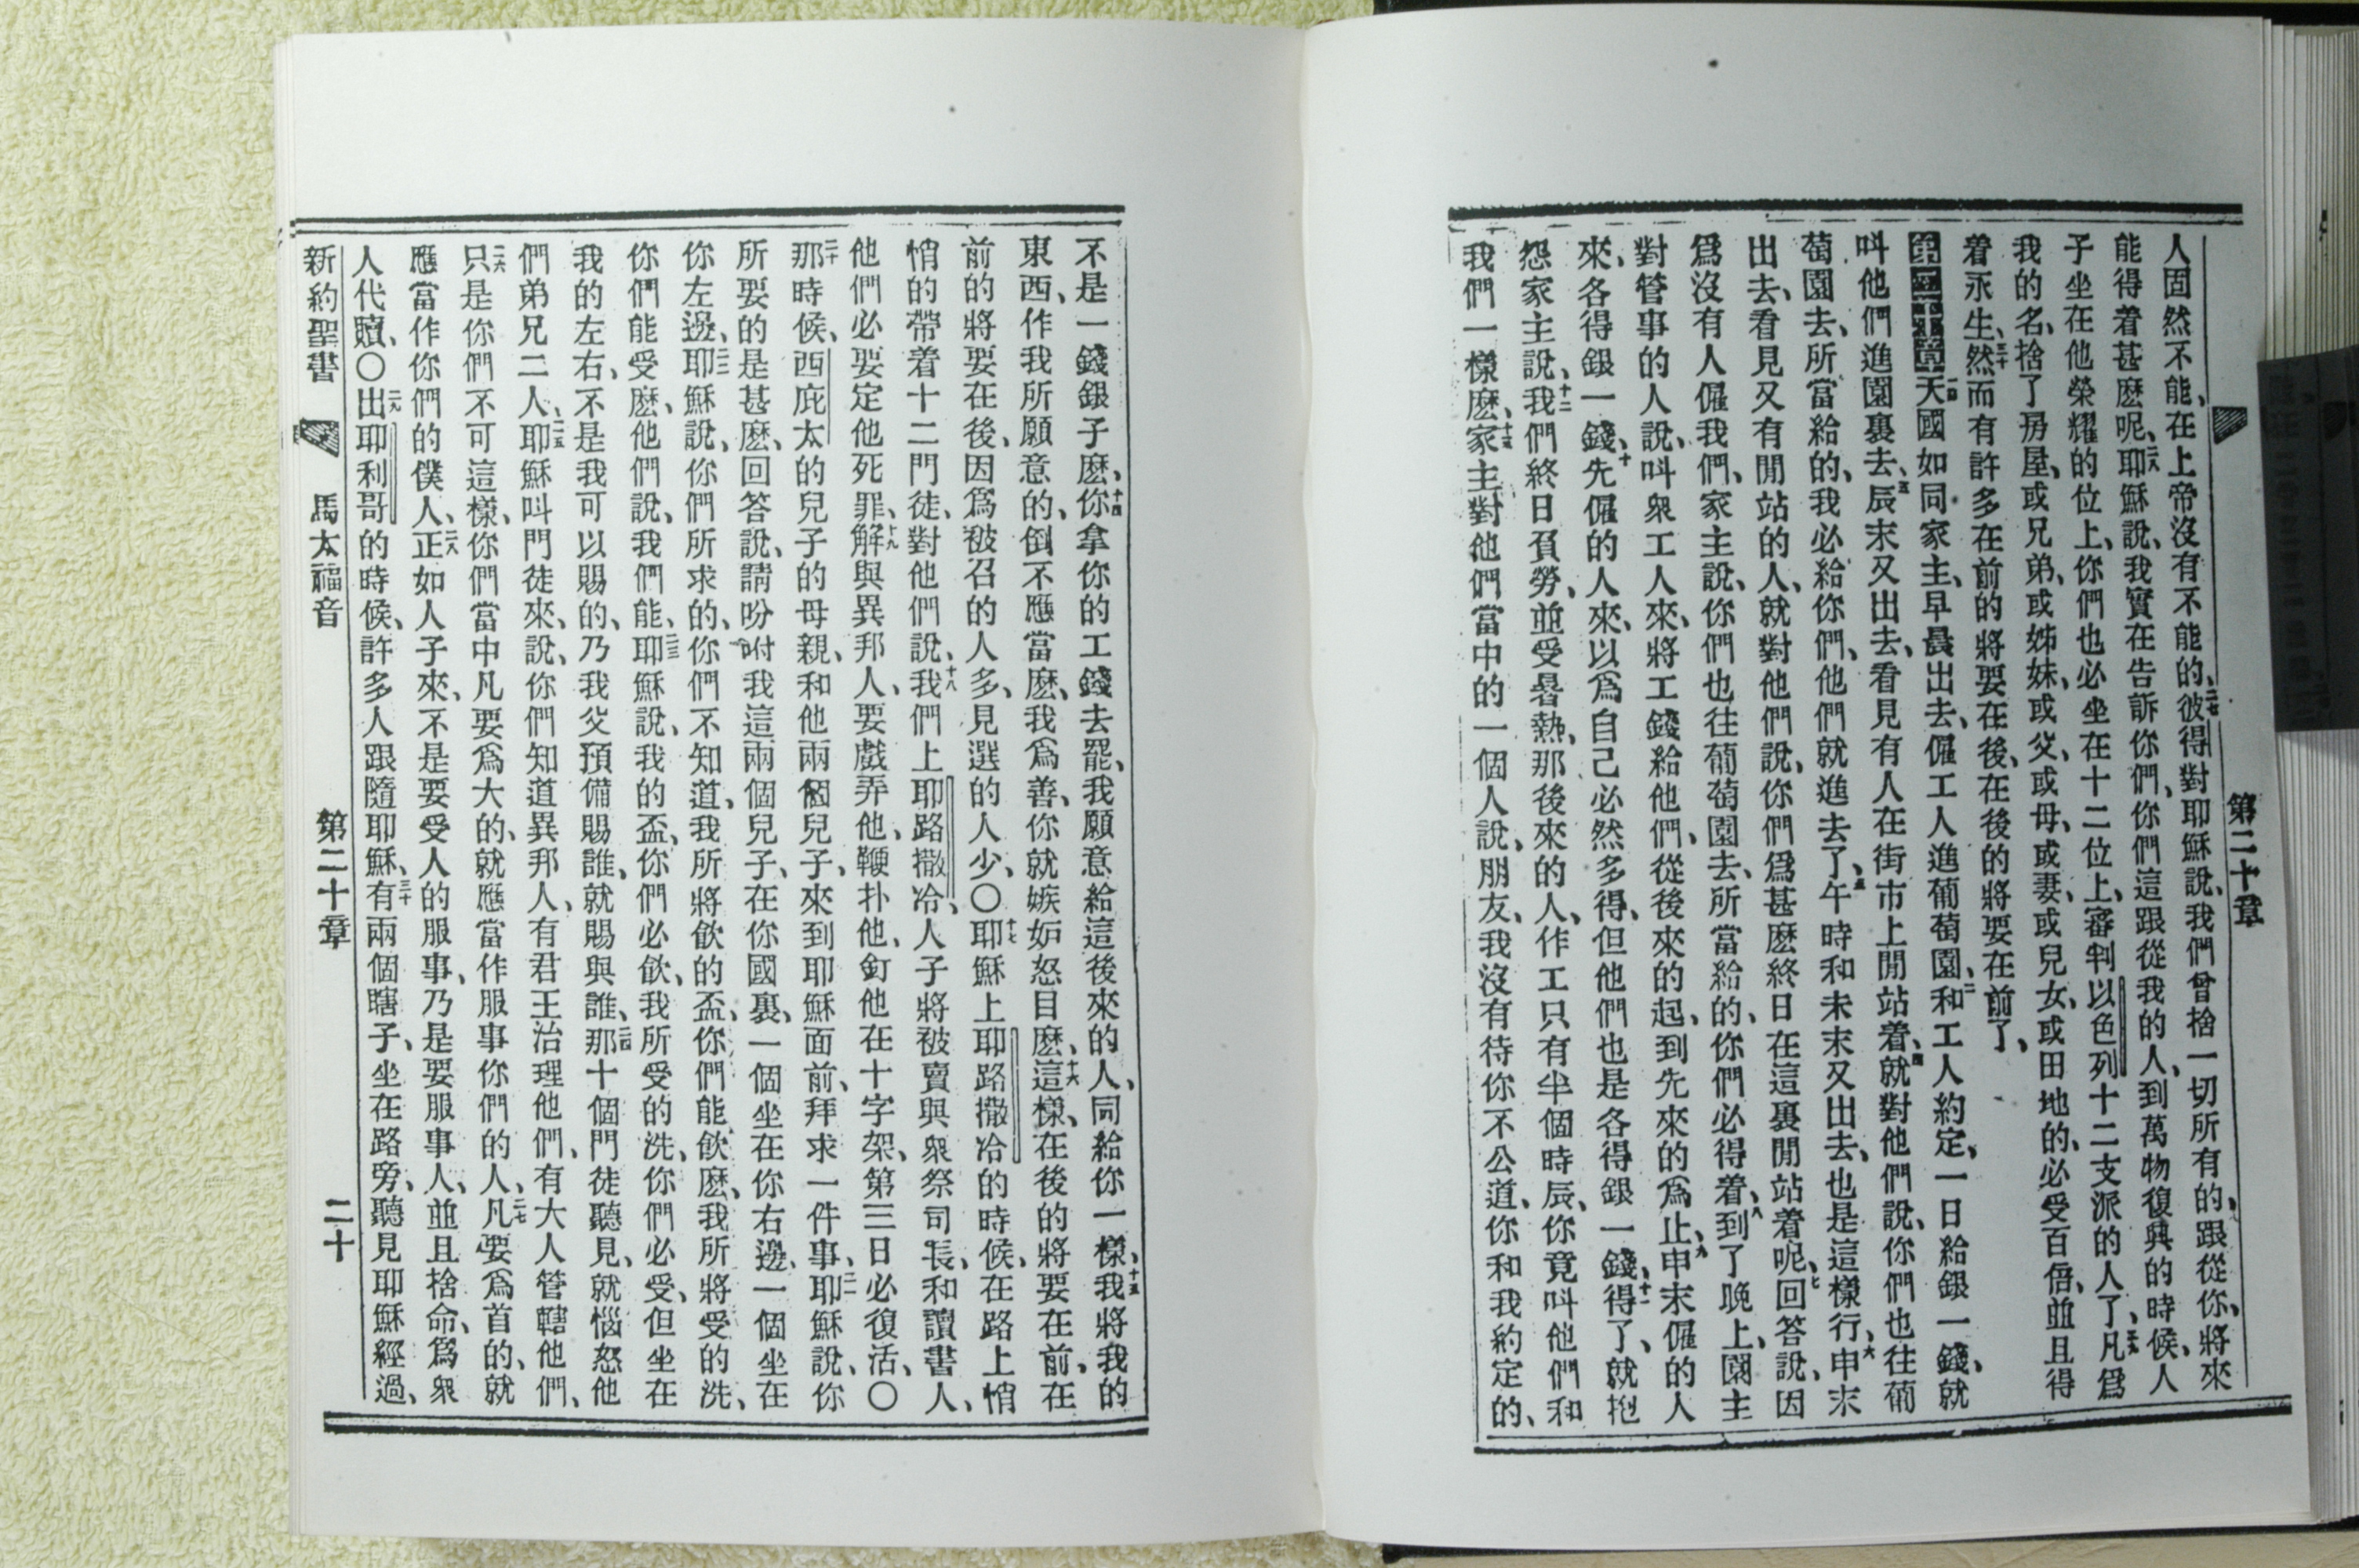 第二十章
人固然不能、在上帝沒有不能的、二七彼得對耶穌說、我們曾捨一切所有的、跟從你、將來
能得着甚麽呢、二八耶穌說、我實在告訴你們、你們這跟從我的人、到萬物復興的時候、人
子坐在他榮耀的位上、你們也必坐在十二位上、審判以色列十二支派的人了、二九凡爲
我的名、捨了房屋、或兄弟、或姊妹、或父、或母、或妻、或兒女、或田地的、必受百倍、並且得
着永生、三十然而有許多在前的將要在後、在後的將要在前了、
第二十章一天國如同家主、早晨出去、僱工人進葡萄園、二和工人約定、一日給銀一錢、就
叫他們進園裏去、三辰末又出去、看見有人在街市上閒站着、四就對他們說、你們也往葡
萄園去、所當給的、我必給你們、他們就進去了、五午時和未末又出去、也是這樣行、六申末
出去、看見又有閒站的人、就對他們說、你們爲甚麽終日在這裏閒站着呢、七回答說、因
爲沒有人僱我們、家主說、你們也往葡萄園去、所當給的、你們必得着、八到了晚上、園主
對管事的人說、叫衆工人來、將工錢給他們、從後來的起、到先來的爲止、九申末僱的人
來、各得銀一錢、十先僱的人來、以爲自己必然多得、但他們也是各得銀一錢、十一得了、就抱
怨家主說、十二我們終日負勞、並受暑熱、那後來的人、作工只有半個時辰、你竟叫他們和
我們一樣麽、十三家主對他們當中的一個人說、朋友、我沒有待你不公道、你和我約定的、
不是一錢銀子麽、十四你拿你的工錢去罷、我願意給這後來的人、同給你一樣、十五我將我的
東西、作我所願意的、倒不應當麽、我爲善、你就嫉妒怒目麽、十六這樣、在後的將要在前、在
前的將要在後、因爲被召的人多、見選的人少、〇十七耶穌上耶路撒冷的時候、在路上悄
悄的帶着十二門徒、對他們說、十八我們上耶路撒冷、人子將被賣與衆祭司長、和讀書人、
他們必要定他死罪、十九解與異邦人、要戲弄他、鞭扑他、釘他在十字架、第三日必復活、〇
二十那時候、西庇太的兒子的母親、和他兩個兒子、來到耶穌面前、拜求一件事、二一耶穌說、你
所要的是甚麽、回答說、請吩咐我這兩個兒子、在你國裏、一個坐在你右邊、一個坐在
你左邊、二二耶穌說、你們所求的、你們不知道、我所將飮的盃、你們能飮麽、我所將受的洗、
你們能受麽、他們說、我們能、二三耶穌說、我的盃、你們必飮、我所受的洗、你們必受、但坐在
我的左右、不是我可以賜的、乃我父預備賜誰、就賜與誰、二四那十個門徒聽見、就惱怒他
們弟兄二人、二五耶穌叫門徒來、說、你們知道異邦人、有君王治理他們、有大人管轄他們、
二六只是你們不可這樣、你們當中凡要爲大的、就應當作服事你們的人、二七凡要爲首的、就
應當作你們的僕人、二八正如人子來、不是要受人的服事、乃是要服事人、並且捨命、爲衆
人代贖、〇二九出耶利哥的時候、許多人跟隨耶穌、三十有兩個瞎子、坐在路旁、聽見耶穌經過、
新約聖書 馬太福音 第二十章 二十